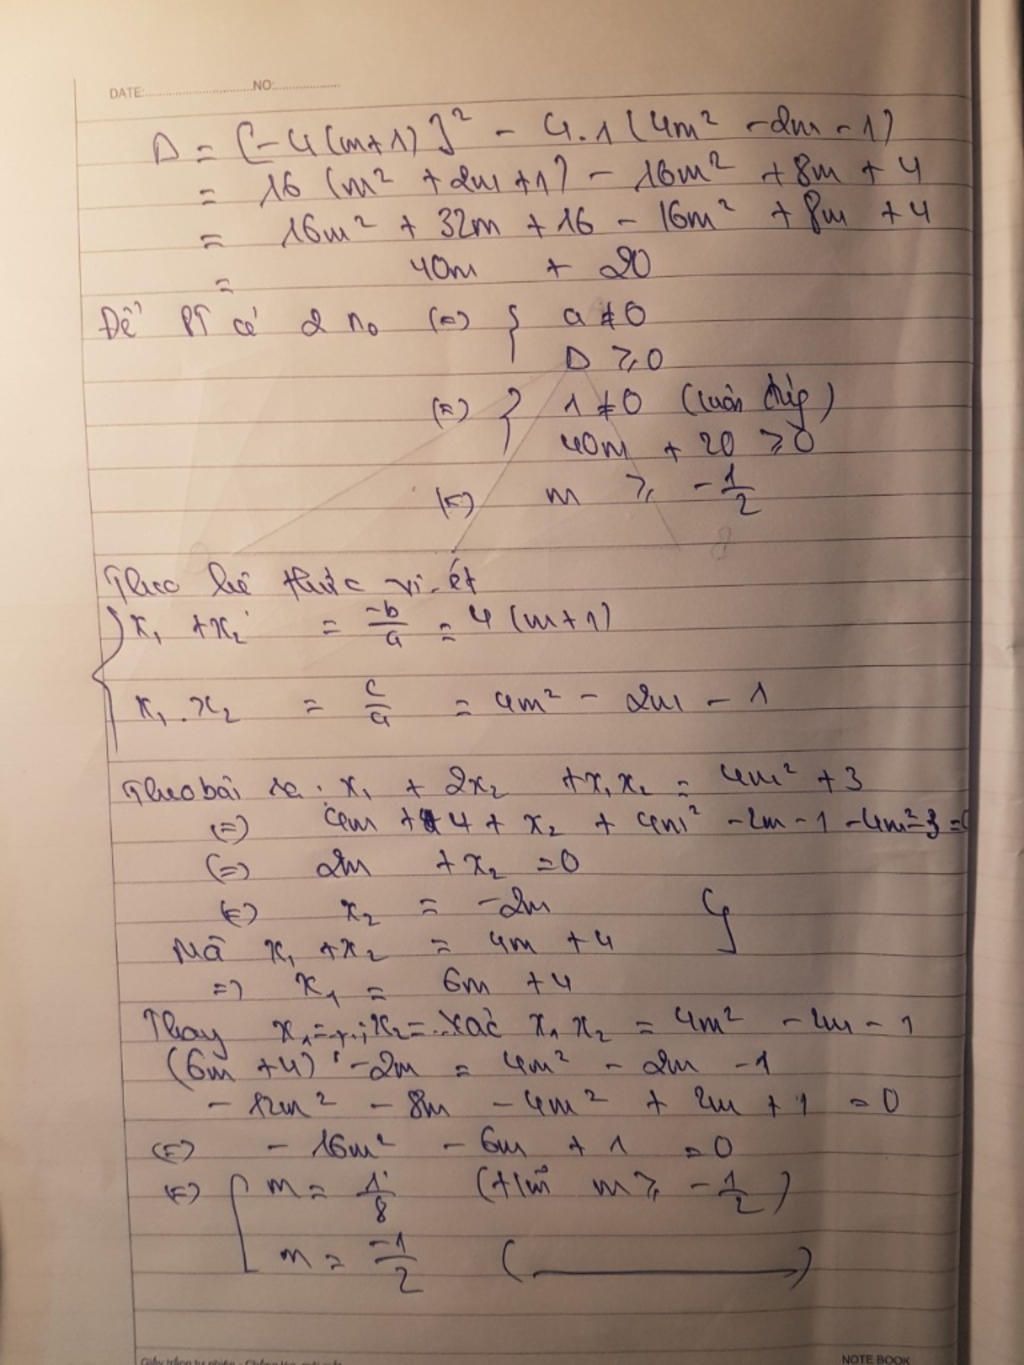 DATE:........................NO:...............
Δ = [-4(m+1)]² - 4.1(4m² - 2m - 1)
= 16 (m² + 2m + 1) - 16m² + 8m + 4
= 16m² + 32m + 16 - 16m² + 8m + 4
= 40m + 20
Để PT có 2 no (=) { a ≠ 0
Δ ≥ 0
(=) { 1 ≠ 0 (luôn đúng)
40m + 20 ≥ 0
(=) m ≥ -1/2
Theo hê thức vi-ét
{ x₁ + x₂ = -b/a = 4(m+1)
x₁.x₂ = c/a = 4m² - 2m - 1
Theo bài ra: x₁ + 2x₂ + x₁x₂ = 4m² + 3
(=) 4m + 4 + x₂ + 4m² - 2m - 1 - 4m² - 3 = 0
(=) 2m + x₂ = 0
(=) x₂ = -2m
Mà x₁ + x₂ = 4m + 4
=) x₁ = 6m + 4
Thay x₁=..; x₂=... vào x₁x₂ = 4m² - 2m - 1
(6m + 4) . -2m = 4m² - 2m - 1
- 12m² - 8m - 4m² + 2m + 1 = 0
(=) - 16m² - 6m + 1 = 0
(=) [ m = 1/8 (t/m m ≥ -1/2)
m = -1/2 (————)
NOTE BOOK